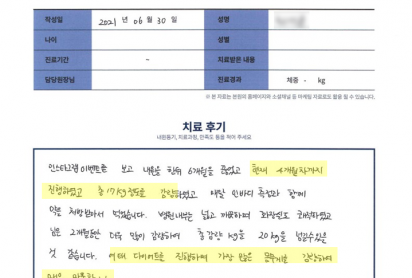 작성일 2021 년 06 월 30 일 성명
나이 성별
진료기간 ~ 치료받은 내용
담당원장님 진료경과 체중 - kg
※ 본 자료는 본원의 홈페이지와 소셜채널 등 마케팅 자료로도 활용 될 수 있습니다.
치료 후기
내원동기, 치료과정, 만족도 등을 적어 주세요
인스타그램 이벤트를 보고 내원을 한뒤 6개월을 끊었고 현재 4개월차까지
진행하였고 총 17kg 정도를 감량하였고 매달 인바디 측정과 함께
약을 처방받아서 먹었습니다. 병원내부는 넓고 깨끗하며 화장실도 쾌적하였고
남은 2개월동안 더욱 많이 감량하여 총 감량 kg을 20kg을 넘길수있을
것 같습니다. 여태 다이어트를 진행하며 가장 많은 몸무게를 감량하여